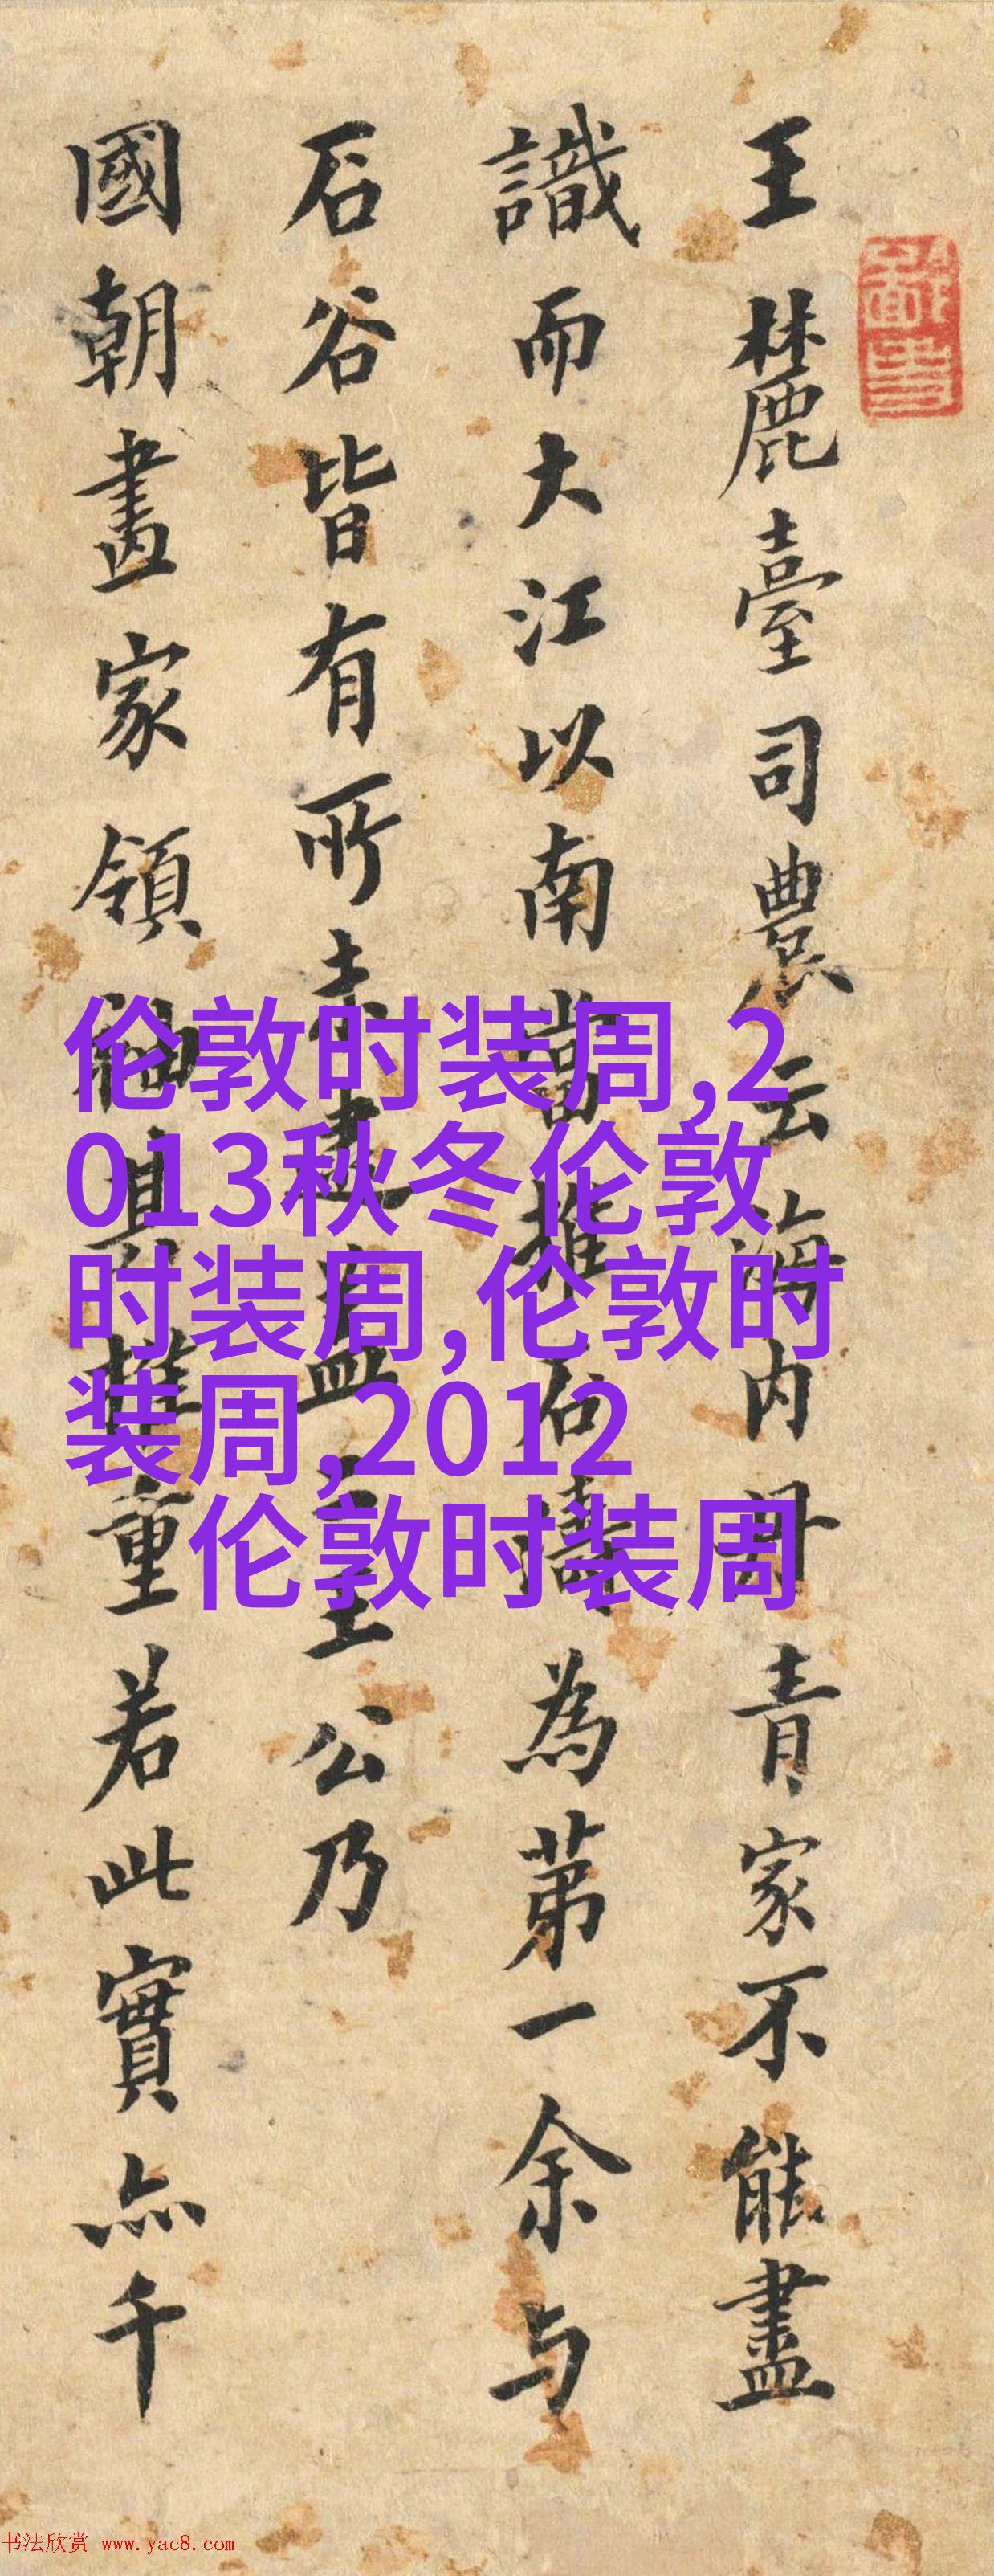 王麓臺司農云海内丹青家不能盡
識而大江以南當推石濤為第一余与
石谷皆有所未逮蓋王公乃
國朝畫家領袖其推重若此實亦千
伦敦时装周,2
013秋冬伦敦
时装周,伦敦时
装周,2012
伦敦时装周
书法欣赏 www.yac8.com